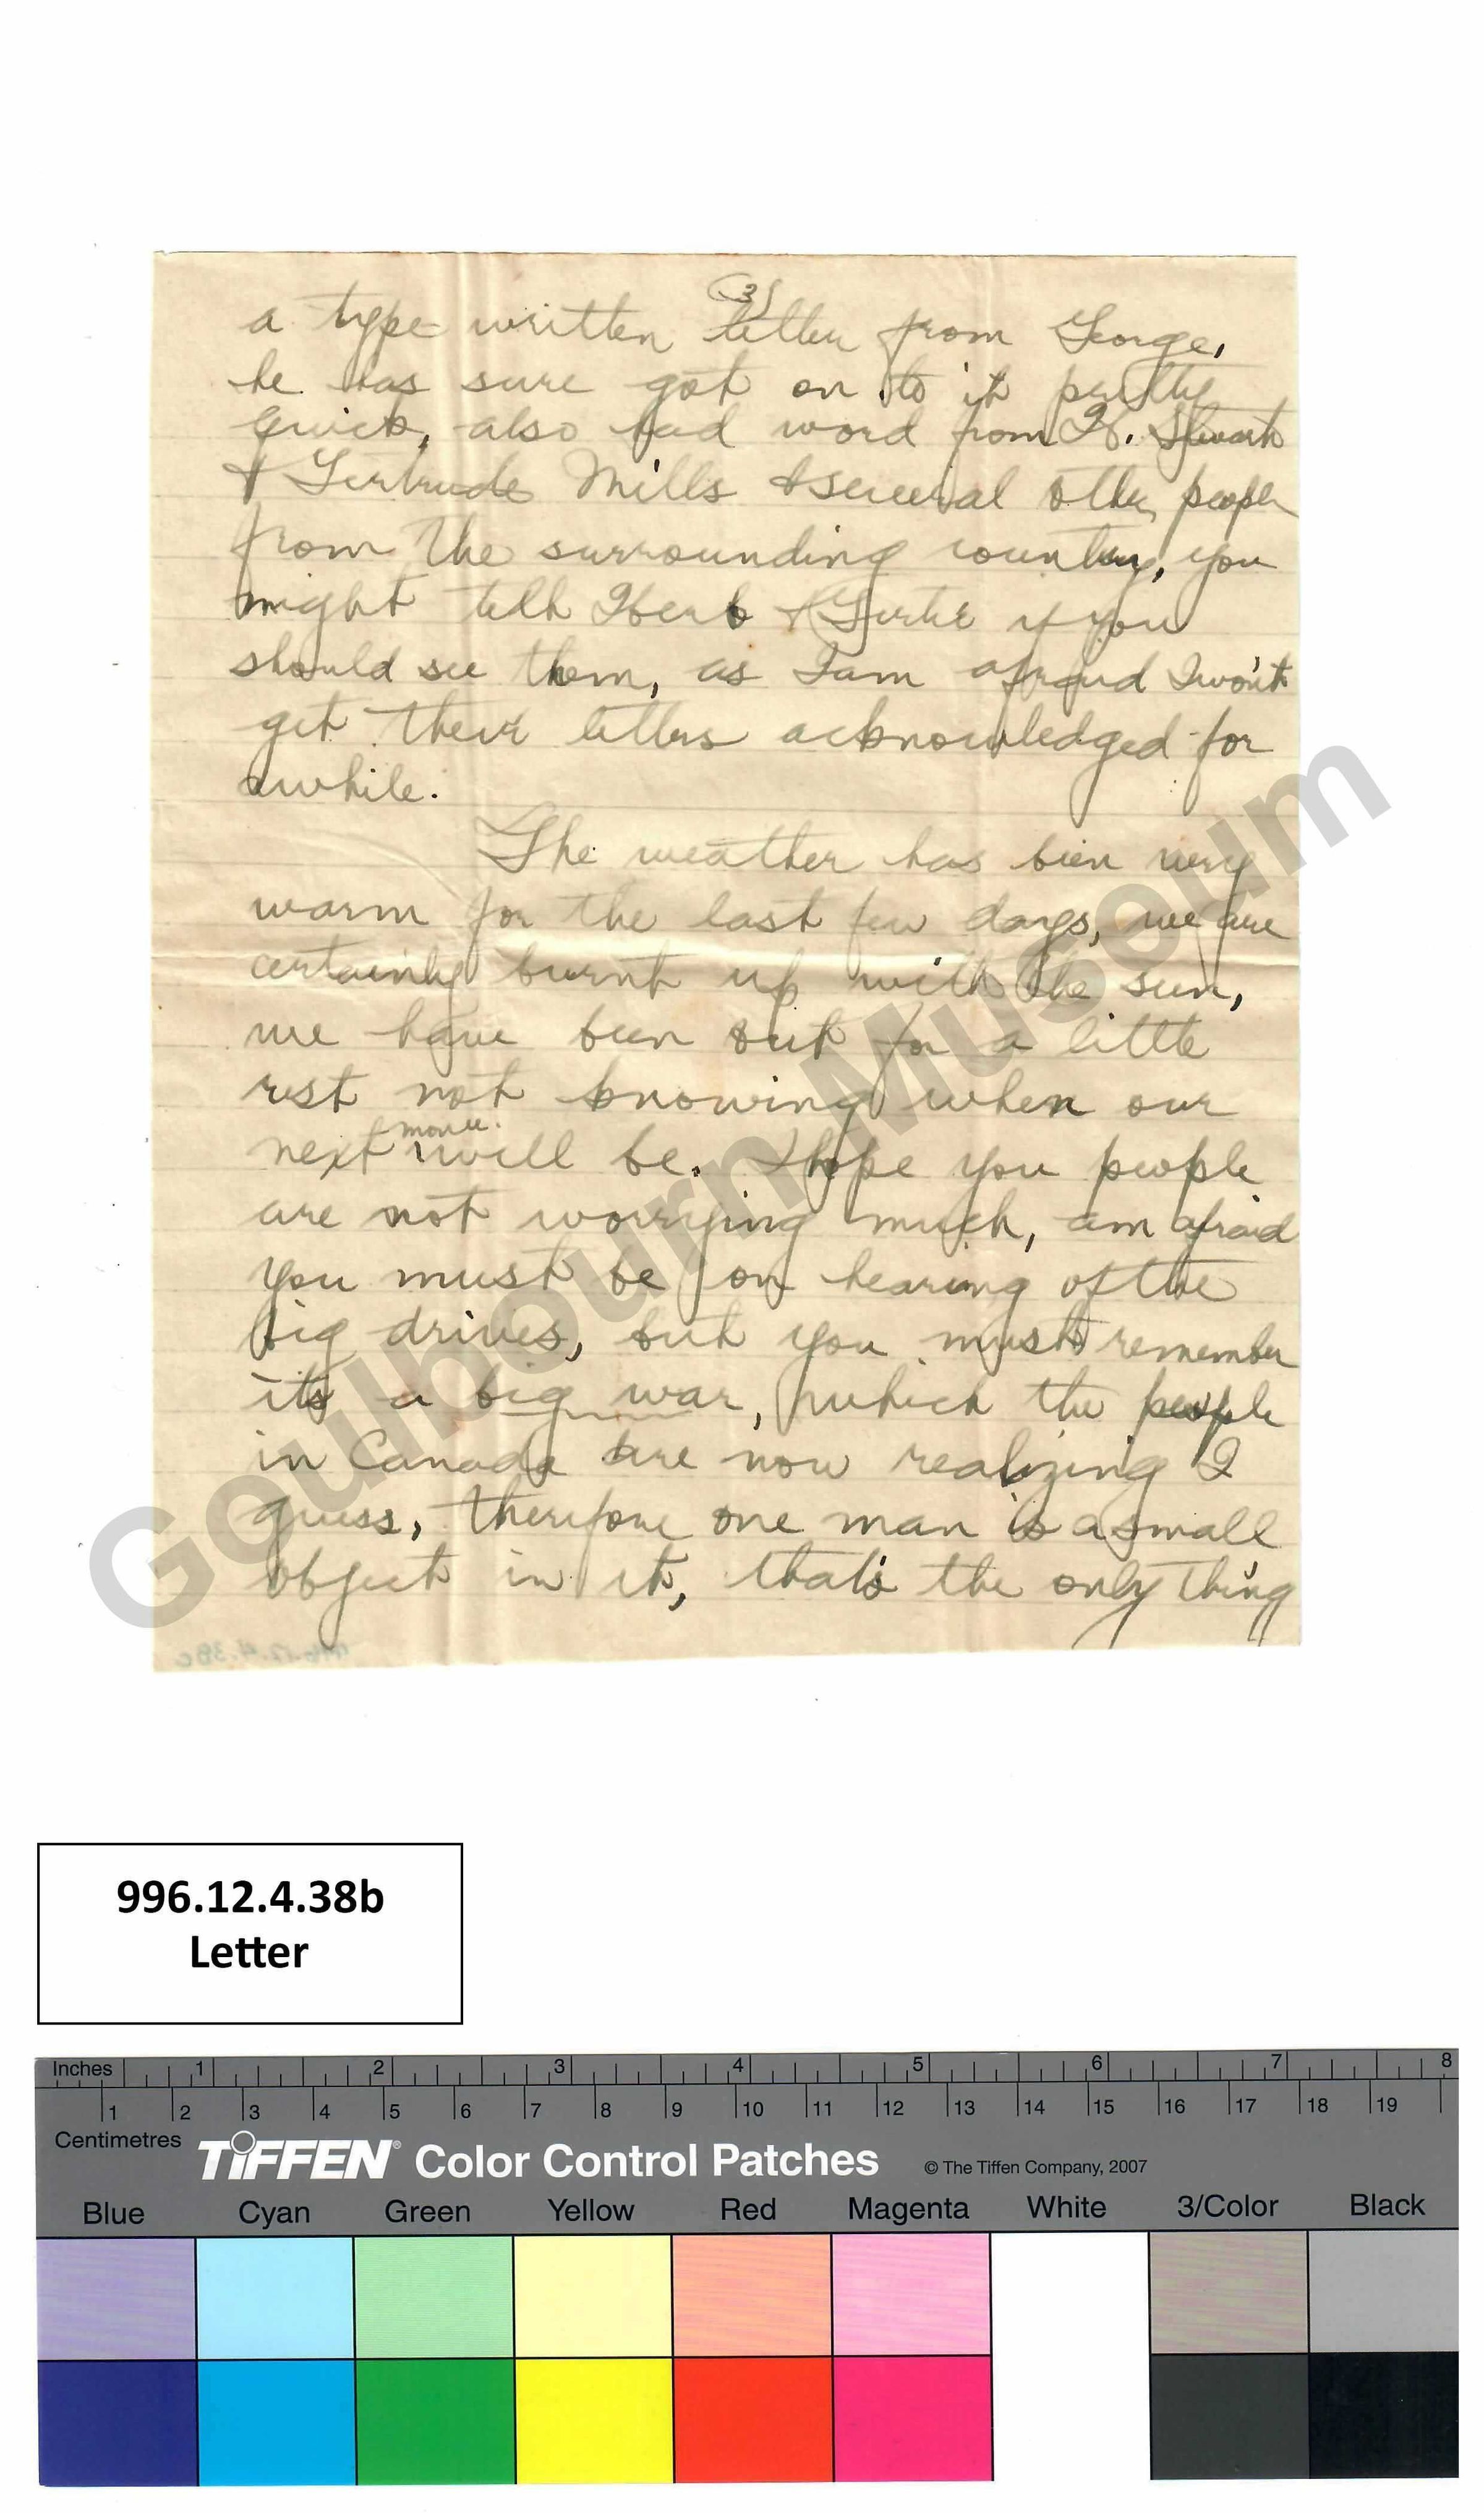 (3)
a type written letter from George,
he has sure got on to it pretty
quick, also had word from H. Stuart
& Gertrude Mills & several other people
from the surrounding country, you
might tell Herb & Gertie if you
should see them, as I am afraid I won't
get their letters acknowledged for
awhile.
The weather has been very
warm for the last few days, we are
certainly burnt up with the sun,
we have been out for a little
rest not knowing when our
next move will be. I hope you people
are not worrying much, am afraid
you must be on hearing of the
big drives, but you must remember
its a big war, which the people
in Canada are now realizing I
guess, therefore one man is a small
object in it, that's the only thing
996.12.4.38c
Goulbourn Museum
996.12.4.38b
Letter
Inches 1 2 3 4 5 6 7 8
1 2 3 4 5 6 7 8 9 10 11 12 13 14 15 16 17 18 19
Centimetres
TIFFEN® Color Control Patches © The Tiffen Company, 2007
Blue Cyan Green Yellow Red Magenta White 3/Color Black